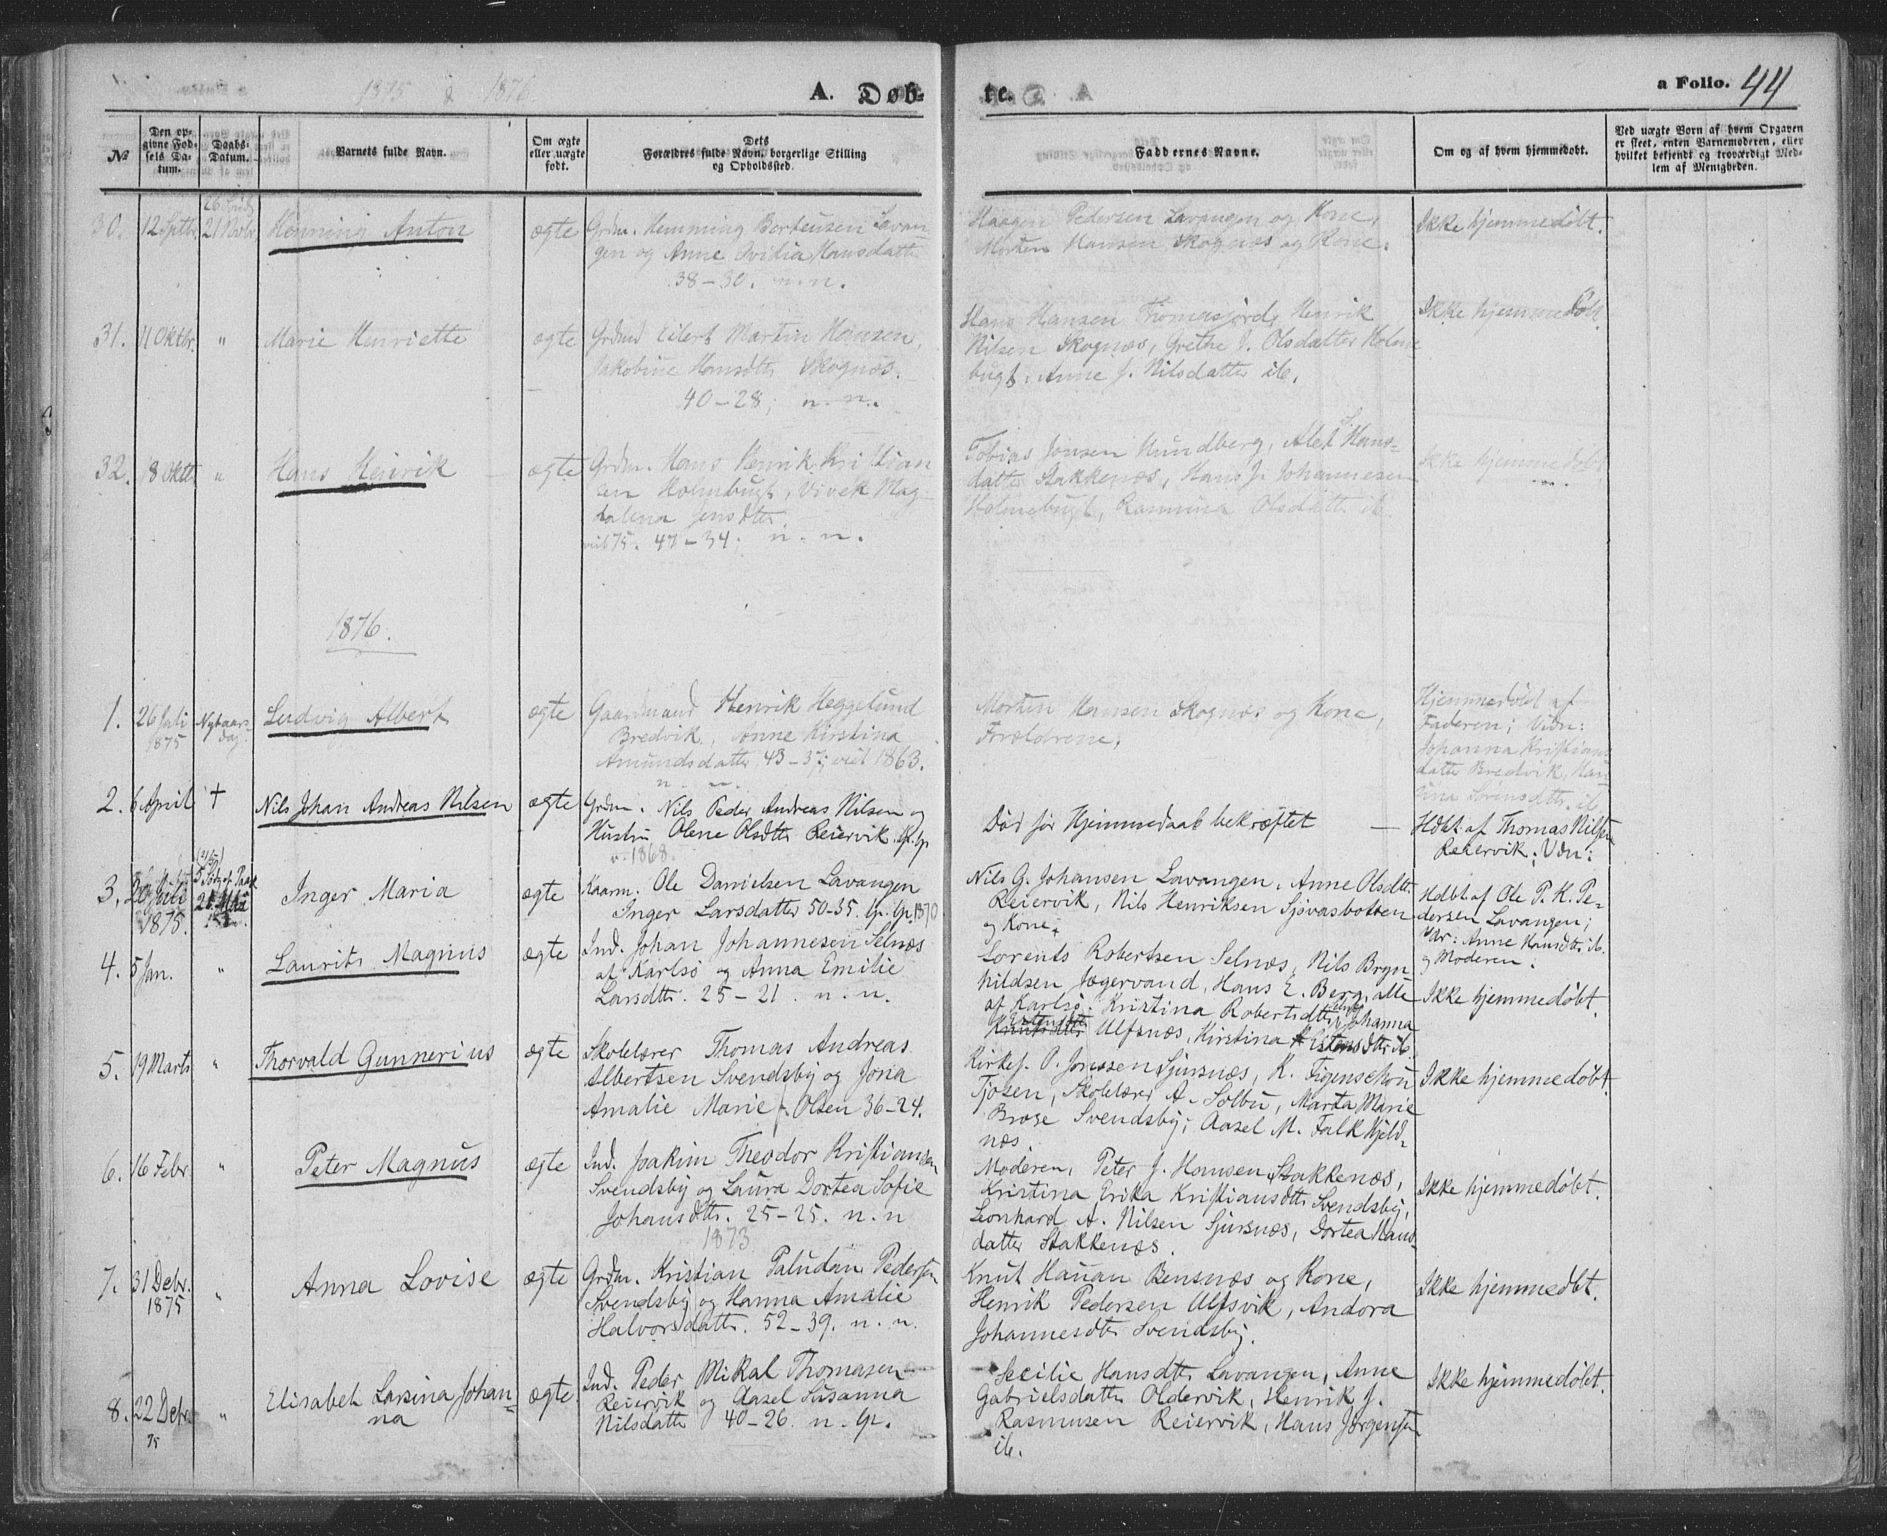 1875 & 1876
A. Døb-
te.
a Folio. 44
№
Den op-
givne Fød-
sels Da-
tum.
Daabs-
Datum.
Barnets fulde Navn.
Om ægte
eller uægte
født.
Dets
Forældres fulde Navn, borgerlige Stilling
og Opholdssted.
Faddernes Navne.
Om og af hvem hjemmedøbt.
Ved uægte Børn af hvem Opgaven
er skeet, enten Barnemoderen, eller
hvilket bekjendt og troværdigt Med-
lem af Menigheden.
30. 12 Septb. 21 Novbr. Henning Anton ægte
Grdm. Hemming Berteusen Lavan-
gen og Anne Ovidia Hansdatter
38-30. n. n.
Haagen Pedersen Lavangen og Kone,
Morten Hansen Skognæs og Kone.
Ikke hjemmedøbt.
31. 11 Oktbr. " Marie Henriette ægte
Grdmd Eilert Martin Hansen,
Jakobine Hansdtr Skognæs.
40-28; n. n.
Hans Hansen Thomasjord, Henrik
Nilsen Skognæs, Grethe J. Olsdatter Holm
bugt, Anne J. Nilsdatter ib.
Ikke hjemmedøbt.
32. 18 Oktbr " Hans Henrik ægte
Grdm. Hans Henrik Kristian
sen Holmbugt, Vivek Mag-
dalena Jensdtr.
viet 75. 47-34; n. n.
Tobias Jonsen Hundberg, Alet S. Hans-
datter Stakkenæs, Hans J. Johannesen
Holmebugt, Rasmina Olsdatter ib.
Ikke hjemmedøbt
1876.
1. 26 Juli
1875
Nytaars-
dag.
Ludvig Albert ægte
Gaardmand Henrik Heggelund
Bredvik, Anne Kirstina
Amundsdatter, 43-37; viet 1863.
n. n.
Morten Hansen Skognæs og Kone,
Forældrene.
Hjemmedøbt af
Faderen; Vidn:
Johanna Kristians
datter Bredvik, Han
Lorensdtr. ib
2. 6 April † Nils Johan Andreas Nilsen ægte
Grdm. Nils Peder Andreas Nilsen og
Hustru Olene Olsdtr Reiervik. lp. lp.
v. 1868.
Død før Hjemmedaab bekræftet —
Hdbt. af Thomas Nilsen
Reiervik; Vdn:
3. 20 Juli
1875.
Inger Maria ægte
Kaarm. Ole Danielsen Lavangen
Inger Larsdatter 50-35. lp. lp. 1870.
Nils G. Johansen Lavangen, Anne Olsdtr
Reiervik, Nils Henriksen Sjøvasbotten
og Kone.
Hdbt af Ole P. K. Pe-
dersen Lavangen;
Vdr: Anne Hansdtr. ib.
og Moderen.
4. 5 Jan. " Laurits Magnus ægte
Ind. Johan Johannesen Selnæs
af Karlsø og Anna Emilie
Larsdtr. 25-21. n. n.
Lorents Robertsen Selnæs, Nils Bryn
hildsen Jægervand, Hans E. Berg, alle
af Karlsø, Kristina Robertsdtr Johanna
Ulfsnæs, Kirstina ib.
Ikke hjemmedøbt.
5. 19 Marts " Thorvald Gunnerius ægte
Skolelærer Thomas Andreas
Albertsen Svendsby og Jona
Amalie Marie Olsen 36-24.
Kirkes. O. Jonssen Sjursnæs, K. Figenschou
Tjosen, Skolelærer A. Solbu, Marta Marie
Brose Svendsby; Aasel M. Falk Kjeld-
næs.
Ikke hjemmedøbt.
6. 16 Febr " Peter Magnus ægte
Ind. Joakim Theodor Kristiansen
Svendsby og Laura Dortea Sofie
Johansdtr. 25-25. n. n
1873.
Moderen, Peter J. Hansen Stakkenæs,
Kristina Erika Kristiansdtr Svendsby,
Leonhard A. Nilsen Sjursnæs, Dortea Hans-
datter Stakkenæs.
Ikke hjemmedøbt.
7. 31 Decbr.
1875
" Anna Lovise ægte
Grdm. Kristian Paludan Pedersen
Svendsby og Hanna Amalie
Halvorsdatter. 52-39. n. n.
Knut Hauan Bensnæs og Kone,
Henrik Pedersen Ulfsvik, Andora
Johannesdtr Svendsby.
Ikke hjemmedbt.
8. 22 Decbr.
75
" Elisabeh Larsina Johan-
na
ægte.
Ind. Peder Mikal Thomasen
Reiervik og Aasel Susanna
Nilsdatter 40-26. n. lp.
Secilie Hansdtr Lavangen, Anne
Gabrielsdatter Oldervik, Henrik J.
Rasmusen Reiervik, Hans Jørgensen
ib.
Ikke hjemmedøbt.